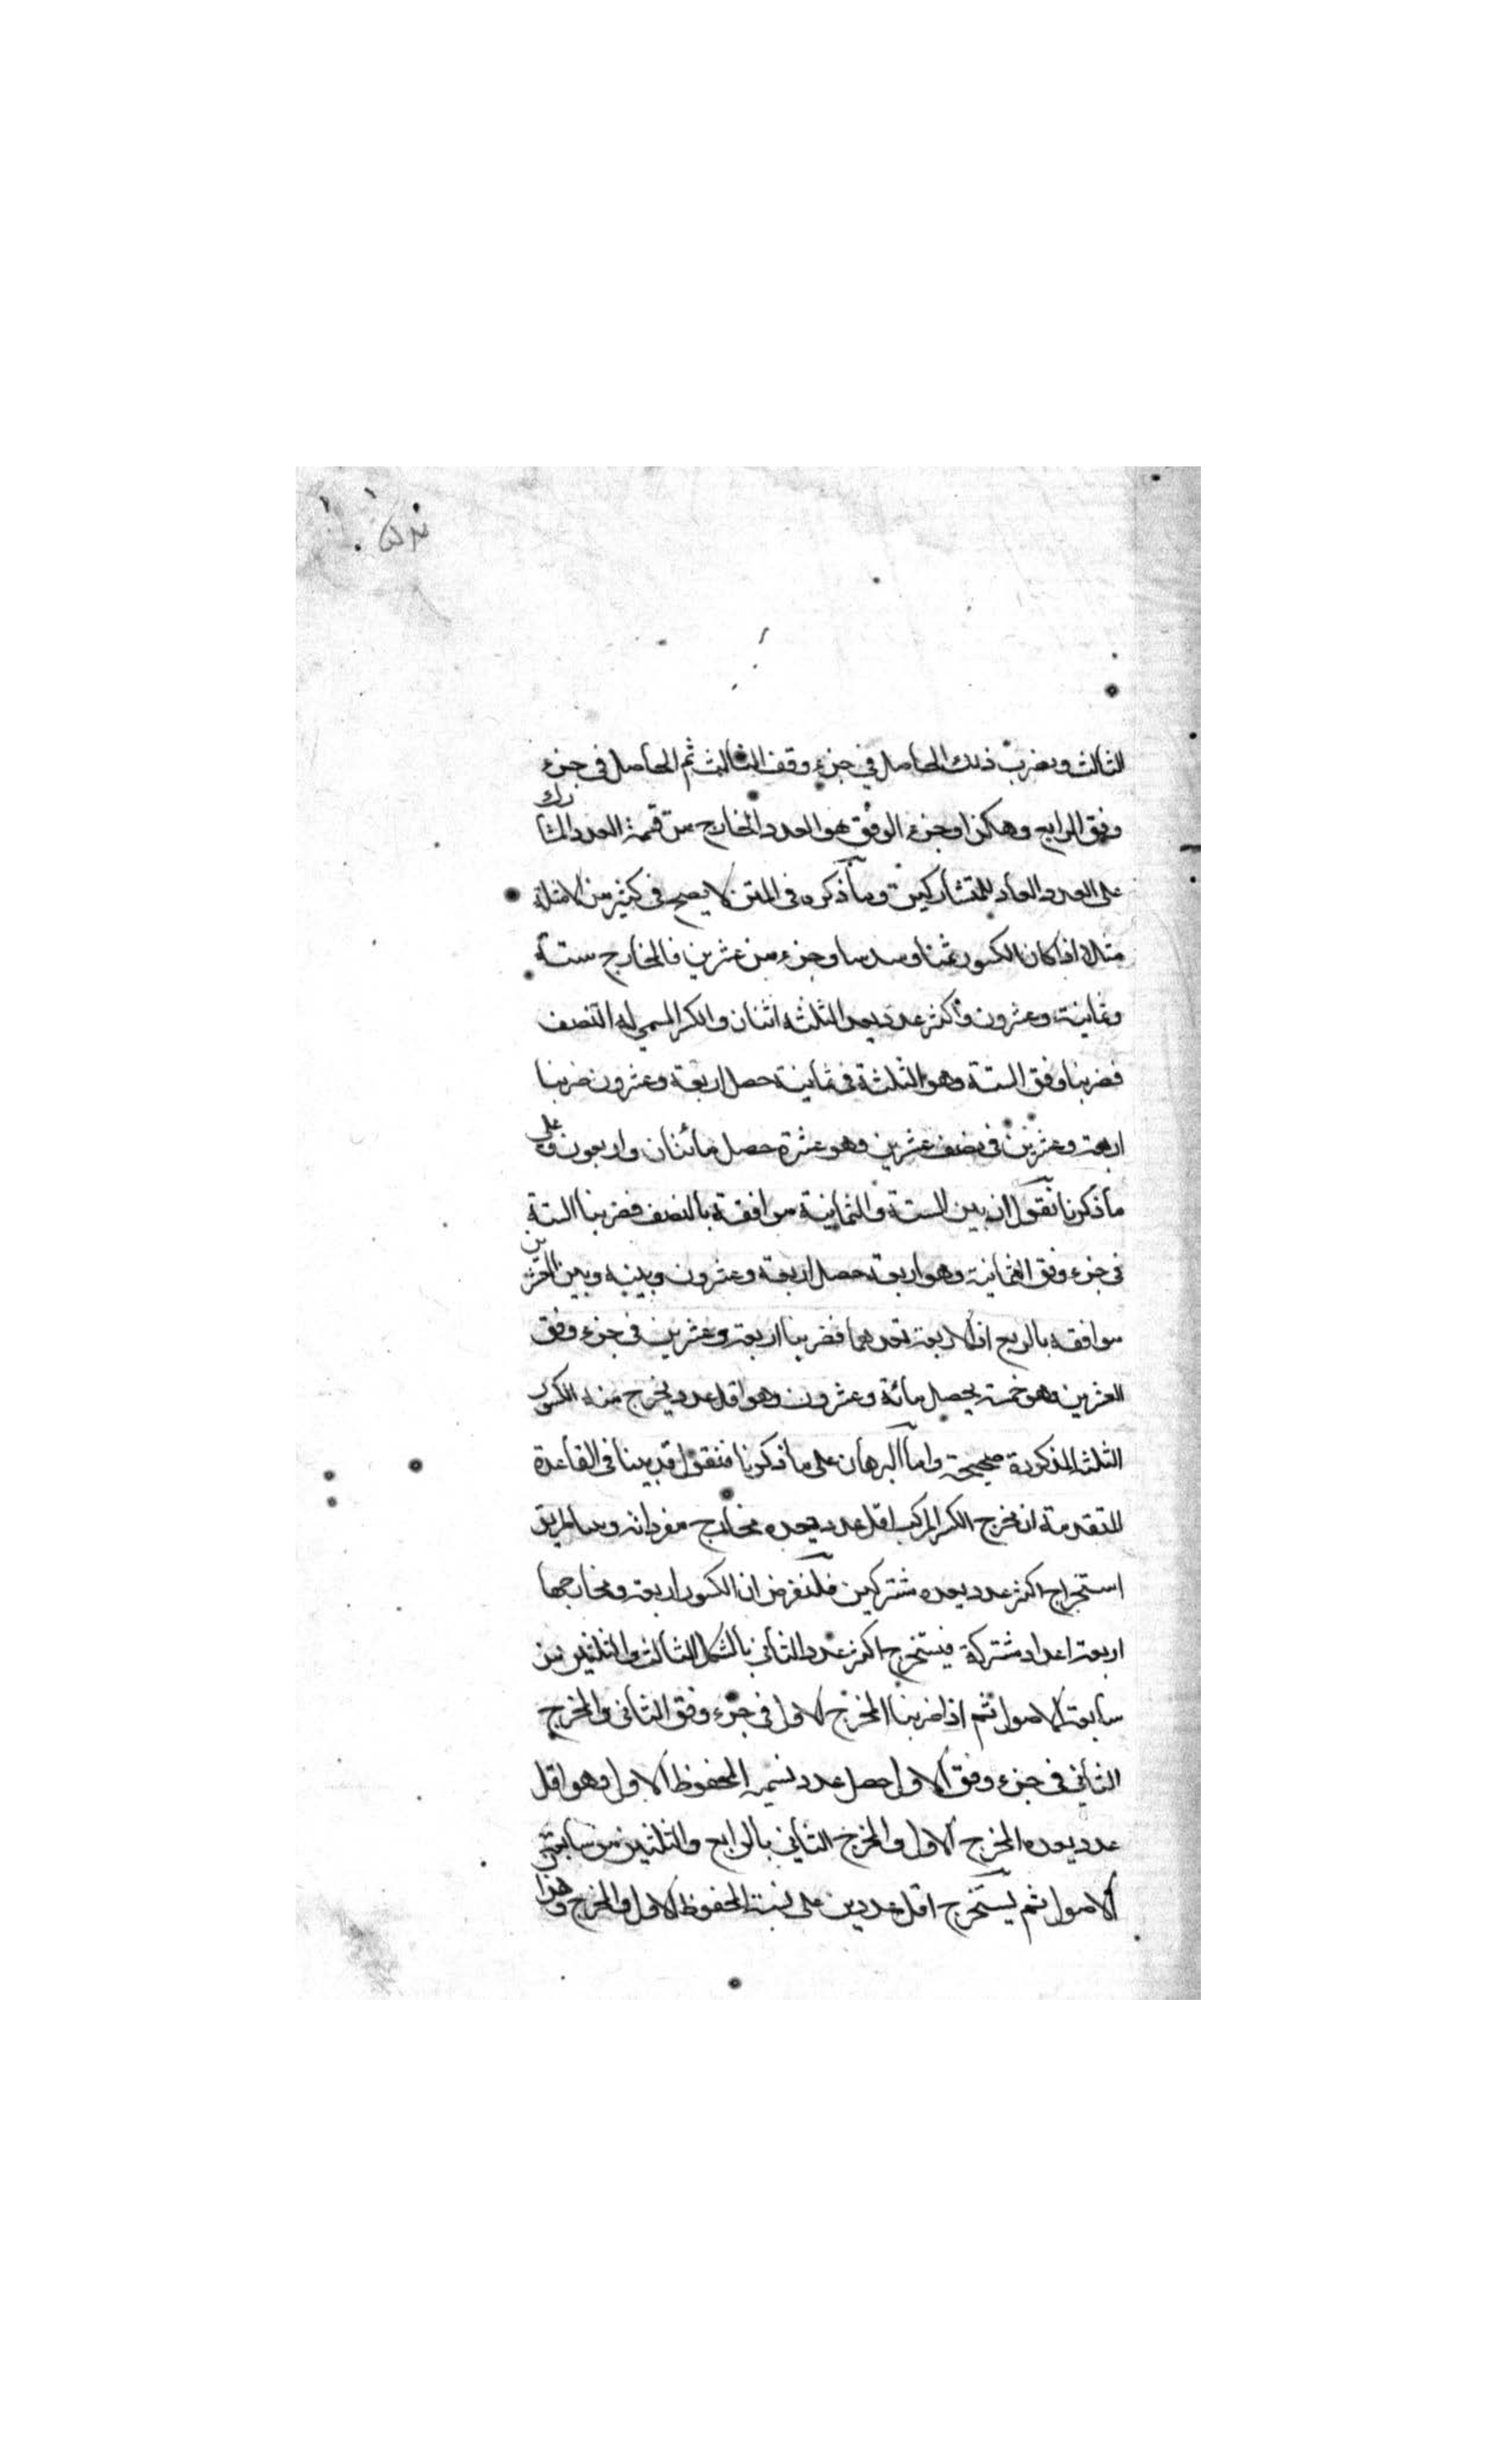 الثالث ويضرب ذلك الحاصل في جزء وفق الثالث ثم الحاصل في جزء
وفق الرابع وهكذا وجزء الوفق هو العدد الخارج من قسمة العدد المشارك
على العدد العاد للمتشاركين وما ذكره في المتن لا يصح في كثير من الامثلة
مثلا اذا كان الكسور ثمنا وسدسا وجزء من عشرين فالمخارج ستة
وثمانية وعشرون واكثر عدد يعد الثلثة اثنان والكسر المسمى له النصف
فضربنا وفق الستة وهو الثلثة في ثمانية حصل اربعة وعشرون ضربنا
اربعة وعشرين في نصف عشرين وهو عشرة حصل مأتنان واربعون وعلى
ما ذكرنا نقول ان بين الستة والثمانية موافقة بالنصف فضربنا الستة
في جزء وفق الثمانية وهو اربعة حصل اربعة وعشرون وبينه وبين العشرين
موافقه بالربع اذ الاربعة تعدهما فضربنا اربعة وعشرين في جزء وفق
العشرين وهو خمسة يحصل مائة وعشرون وهو اقل عدد يخرج منه الكسور
الثلثة المذكورة صحيحة واما البرهان على ما ذكرنا فنقول قد بينا في القاعدة
المتقدمة ان مخرج الكسر المركب اقل عدد يعده مخارج مفرداته وبينا طريق
استخراج اكثر عدد يعده مشتركين فلنفرض ان الكسور اربعة ومخارجها
اربعة اعداد مشتركة فيستخرج اكثر عدد الثاني بالشكل الثالث والثلثين من
سابعة الاصول ثم اذا ضربنا المخرج الاول في جزء وفق الثاني والمخرج
الثاني في جزء وفق الاول حصل عدد نسميه المحفوظ الاول وهو اقل
عدد يعده المخرج الاول والمخرج الثاني بالرابع والثلثين من سابعة
الاصول ثم يستخرج اقل عددين على نسبة المحفوظ الاول والمخرج وهذا